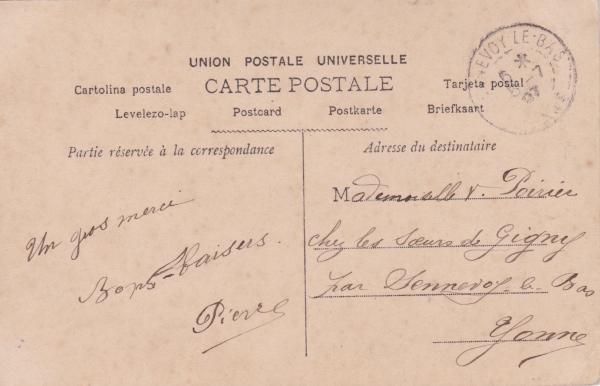 UNION POSTALE UNIVERSELLE
CARTE POSTALE
Cartolina postale
Tarjeta postal
Levelezo-lap
Postcard
Postkarte
Briefkaart
Partie réservée à la correspondance
Adresse du destinataire
Un gros merci
Bons baisers.
Pierre
Mademoiselle V. Poirier
chez les Sœurs de Gigny
par Sennevoy-le-Bas
Yonne
EVOY-LE-BAS